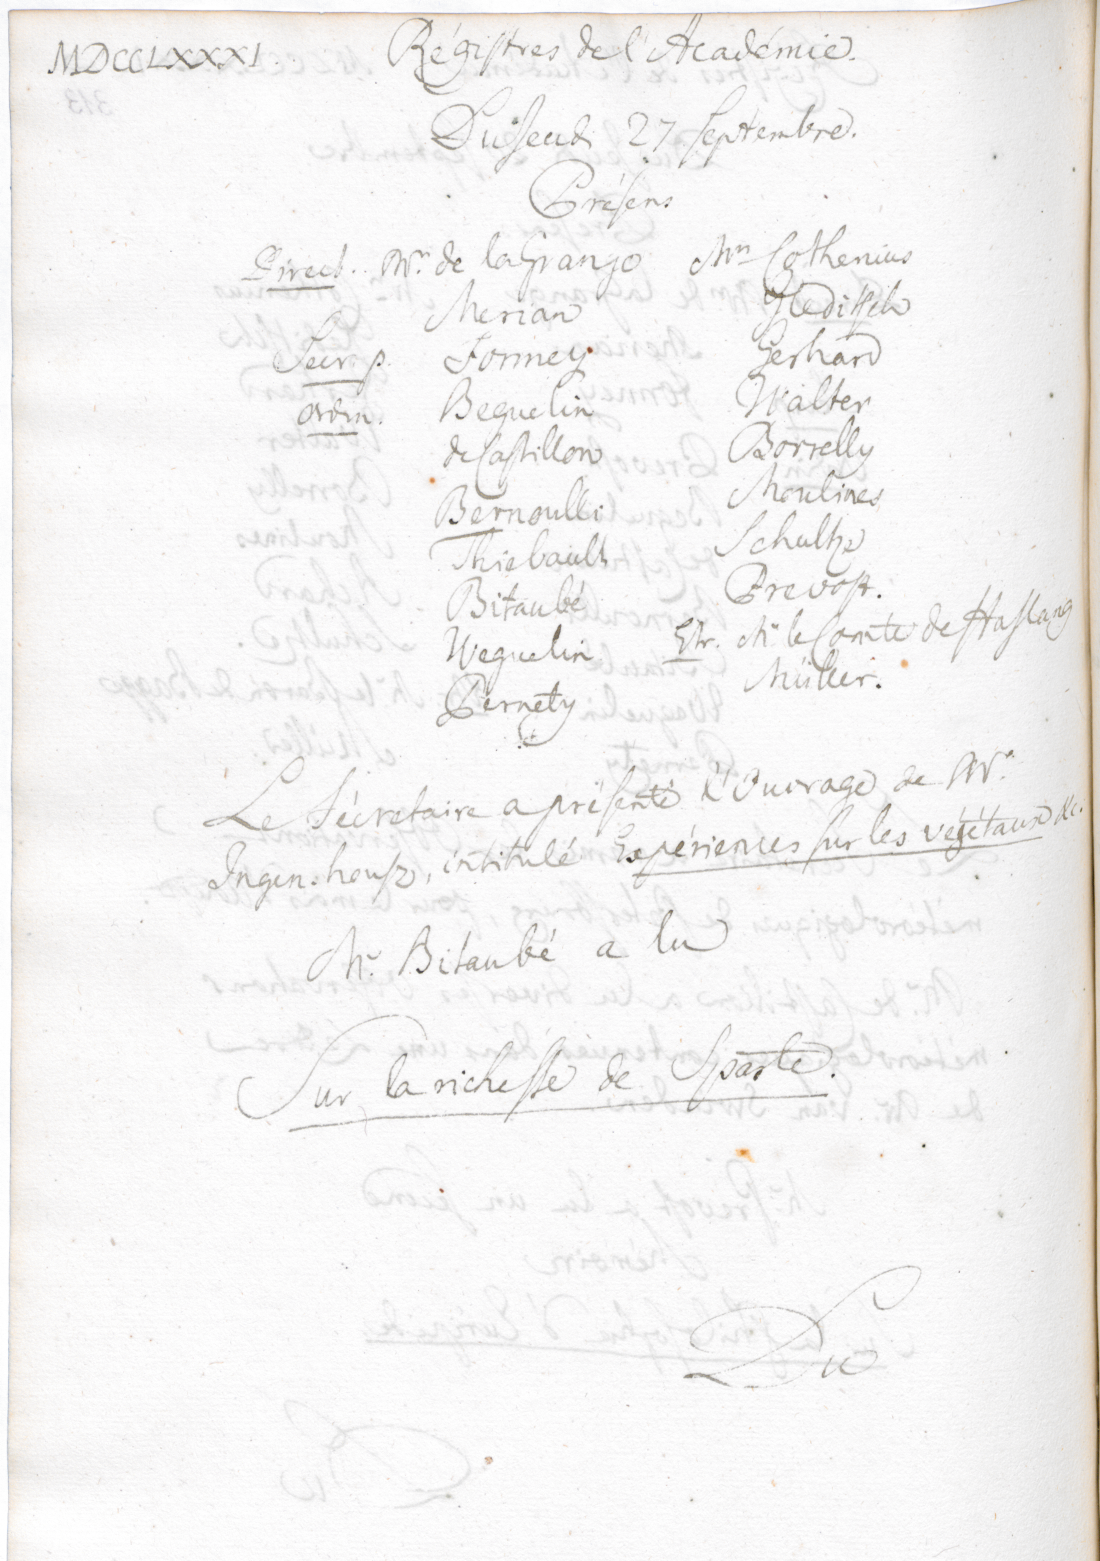 MDCCLXXXI.
Régistres de l'Académie.
Du Jeudi 27 Septembre.
Présens
Direct. Mr. de la Grange
Merian
Secr. p. Formey
ordin. Beguelin
de Castillon
Bernoulli
Thiebault
Bitaubé
Weguelin
Pernety
Mrs Cothenius
Gleditsch
Gerhard
Walter
Borrelly
Moulines
Schultze
Prevost.
Etr. Mr. le Comte de Haslang
Müller.
Le Sécretaire a présenté l'Ouvrage de Mr.
Ingen-housz, intitulé Expériences sur les végétaux &c.
Mr. Bitaubé a lu
Sur la richesse de Sparte.
Du